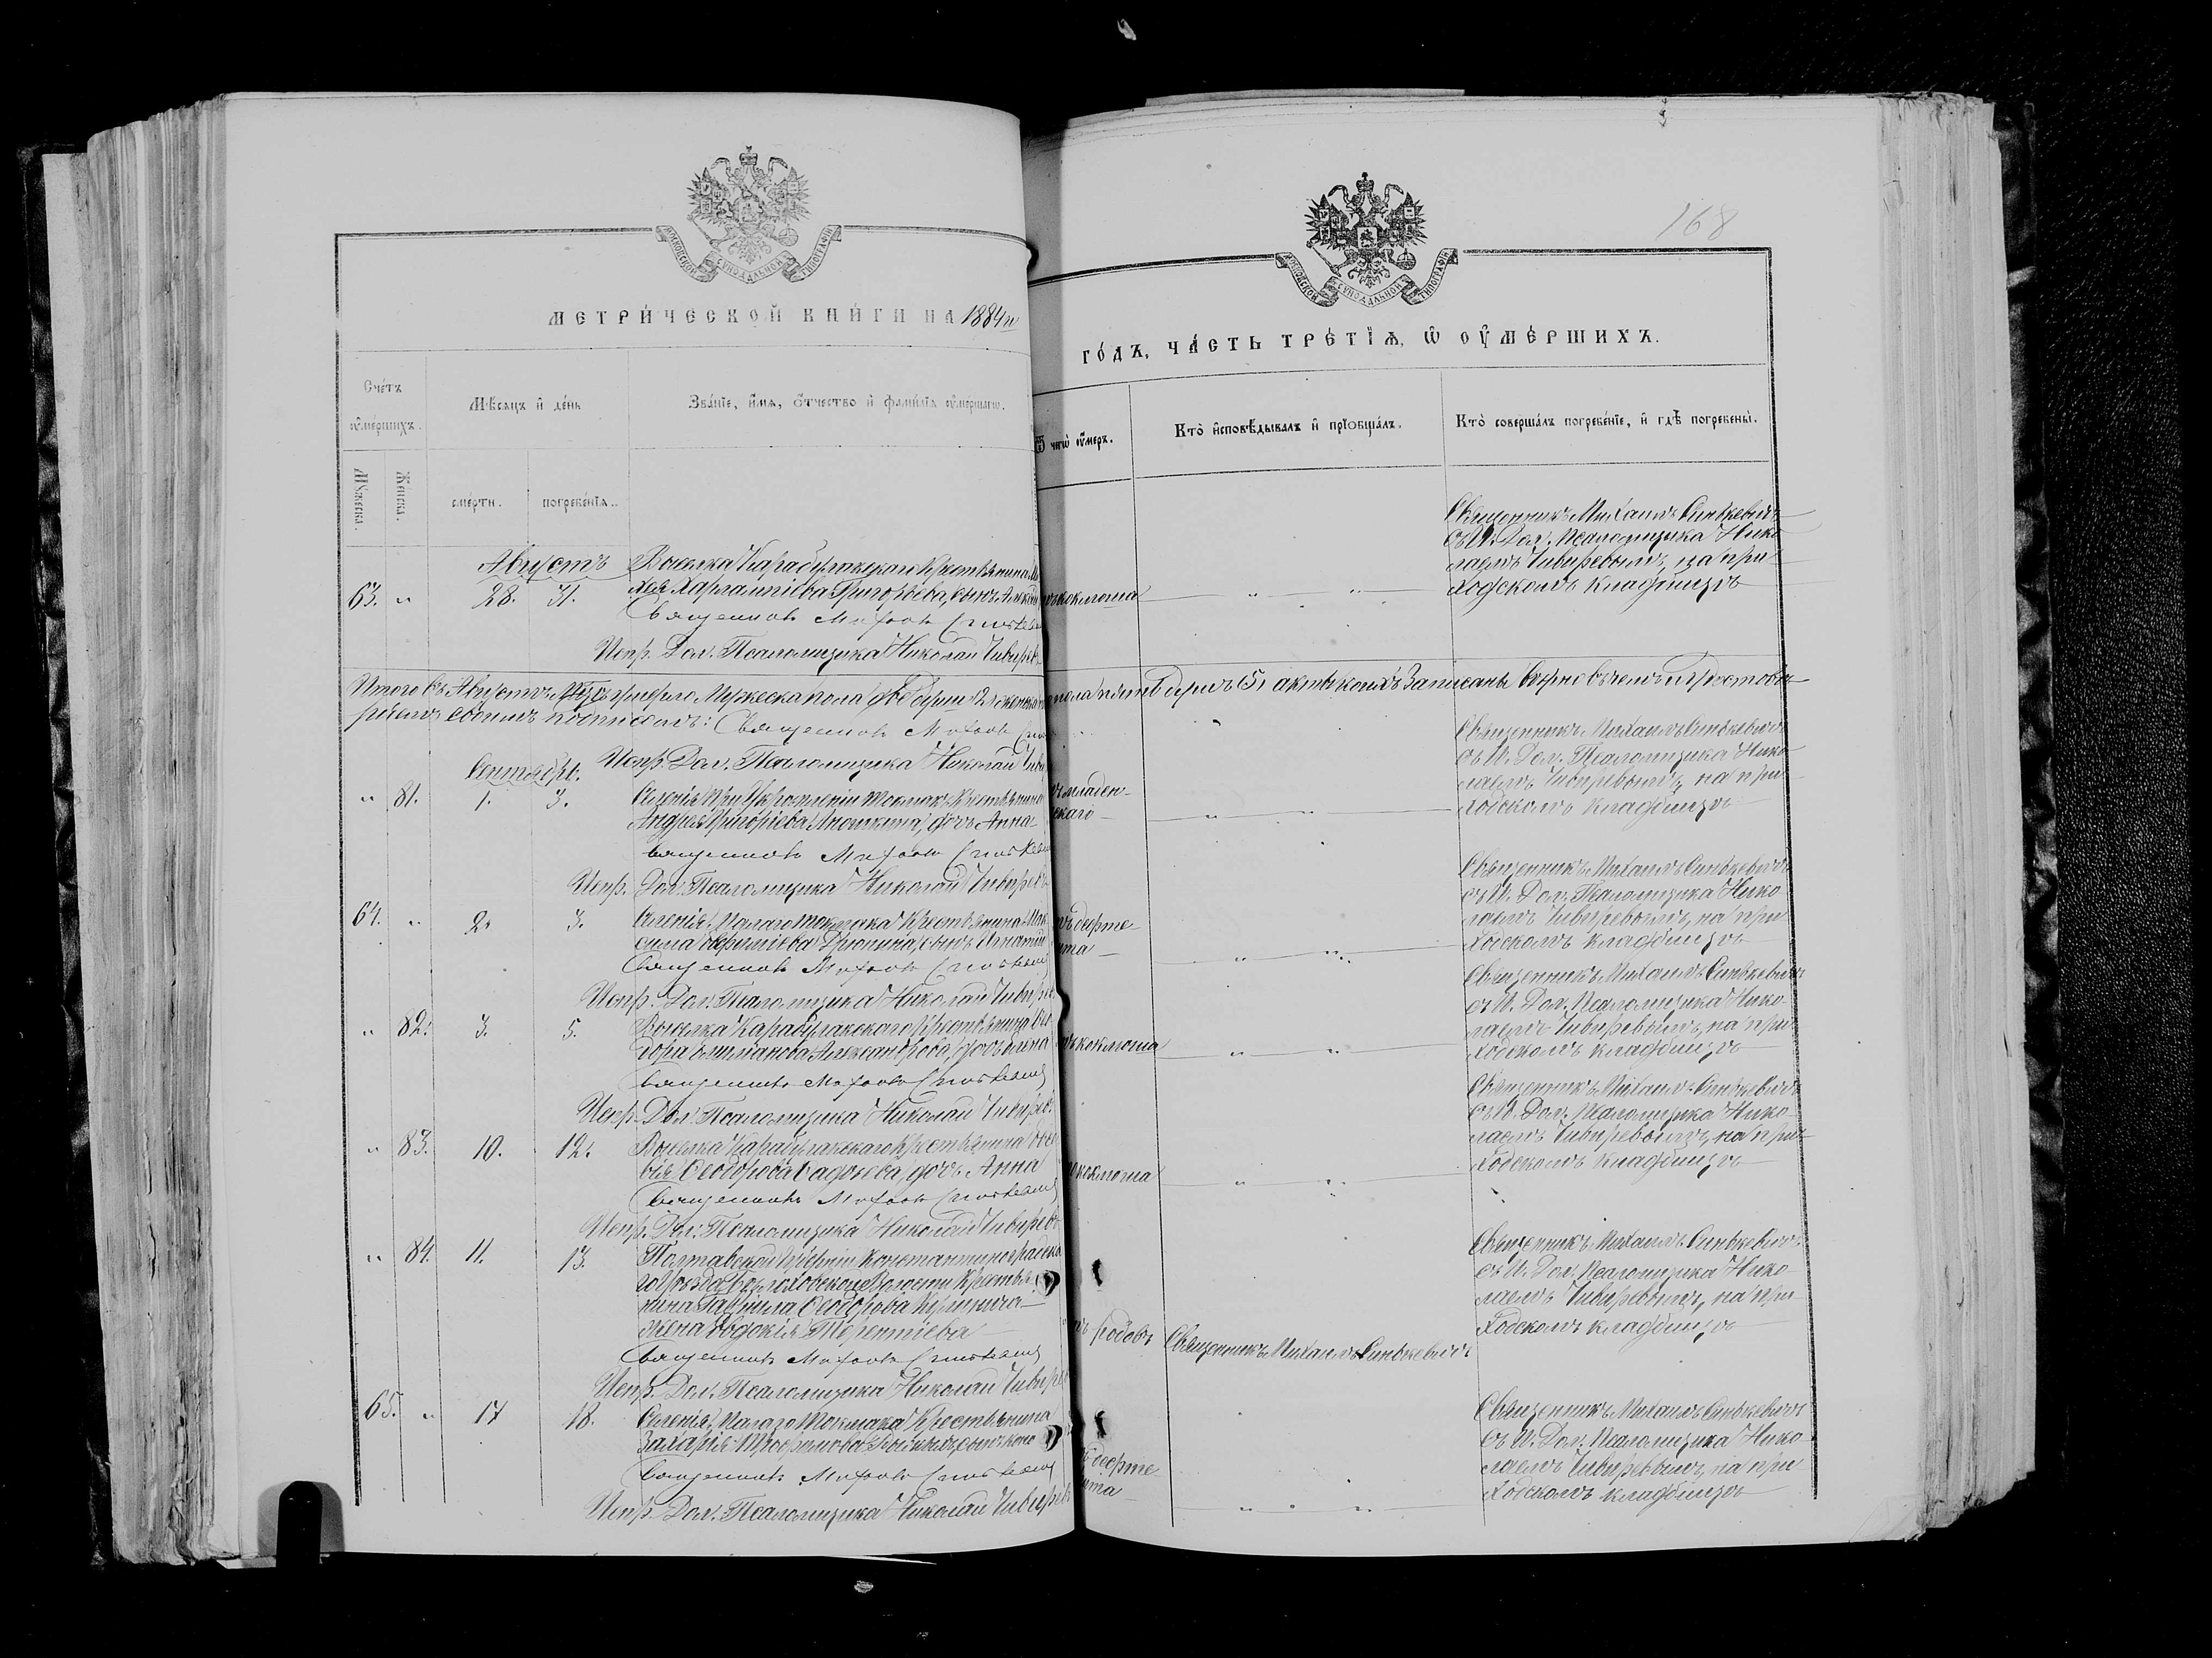 168
МОСКОВСКОЙ СѴНОДАЛЬНОЙ ТИПОГРАФІИ
МОСКОВСКОЙ СѴНОДАЛЬНОЙ ТИПОГРАФІИ
МЕТРИ́ЧЕСКОЙ КНИ́ГИ НА 1884й
ГО́ДЪ, ЧА́СТЬ ТРЕ́ТІѦ, Ѡ ОУМЕ́РШИХЪ.
Сче́тъ
оуме́ршихъ.
Мꙋжеска.
Же́нска.
Мѣ́сяцъ и де́нь
сме́рти.
погребе́нїѧ.
Зва́нїе, и́мѧ, о́тчество и фамилїѧ оуме́ршагѡ.
Ѿ чегѡ̀ оу́меръ.
Кто̀ исповѣ́дывалъ и прїобща́лъ.
Кто̀ соверша́лъ погребе́нїе, и гдѣ̀ погребены̀.
Августъ
63. „ 28. 31.
Поселка Карабулакскаго Крестьянина
Харлампіева Григорьева, сынъ
Священникъ Михаилъ
Испр. Дол. Псаломщика Николай Чивирев
коклюша
Священникъ Михаилъ Синькевичъ
съ И. Дол. Псаломщика Нико-
лаемъ Чивиревымъ, на при-
ходскомъ кладбищѣ
Итого въ Августѣ мѣсяцѣ умерло Мужеска пола двѣ души 2, женска пола пять душъ 5, акты коихъ Записаны вѣрно въ чемъ
своимъ подписомъ: Священникъ Михаилъ
Испр. Дол. Псаломщика Николай
Сентябрь.
„ 81. 1. 3.
Селенія Крестьянина
Андрея Григоріева дочь Анна
Священникъ Михаилъ
Испр. Дол. Псаломщика Николай Чивирев
младен-
скаго
Священникъ Михаилъ Синькевичъ
съ И. Дол. Псаломщика Нико-
лаемъ Чивиревымъ, на при-
ходскомъ кладбищѣ
64. „ 2. 3.
Селенія Малаго Токмака Крестьянина Мак-
сима сынъ Игнатій
Священникъ Михаилъ
Испр. Дол. Псаломщика Николай Чивирев
Священникъ Михаилъ Синькевичъ
съ И. Дол. Псаломщика Нико-
лаемъ Чивиревымъ, на при-
ходскомъ кладбищѣ
„ 82. 3. 5.
Поселка Карабулакскаго Крестьянина
Александрова, дочь Елена
Священникъ Михаилъ
Испр. Дол. Псаломщика Николай Чивирев
коклюша
Священникъ Михаилъ Синькевичъ
съ И. Дол. Псаломщика Нико-
лаемъ Чивиревымъ, на при-
ходскомъ кладбищѣ
„ 83. 10. 12.
Поселка Карабулакскаго Крестьянина
Ѳеодорова дочь Анна
Священникъ Михаилъ
Испр. Дол. Псаломщика Николай Чивирев
коклюша
Священникъ Михаилъ Синькевичъ
съ И. Дол. Псаломщика Нико-
лаемъ Чивиревымъ, на при-
ходскомъ кладбищѣ
„ 84. 11. 13.
Полтавской Губерніи Константиноградска-
го уѣзда Волости Крестья-
нина Гавріила Ѳеодорова
жена Евдокія Терентіева
Священникъ Михаилъ
Испр. Дол. Псаломщика Николай Чивирев
родовъ
Священникъ Михаилъ Синькевичъ
Священникъ Михаилъ Синькевичъ
съ И. Дол. Псаломщика Нико-
лаемъ Чивиревымъ, на при-
ходскомъ кладбищѣ
65. „ 17 18.
Селенія Малаго Токмака Крестьянина
Захарія Трофимова
Священникъ Михаилъ
Испр. Дол. Псаломщика Николай Чивирев
Священникъ Михаилъ Синькевичъ
съ И. Дол. Псаломщика Нико-
лаемъ Чивиревымъ, на при-
ходскомъ кладбищѣ